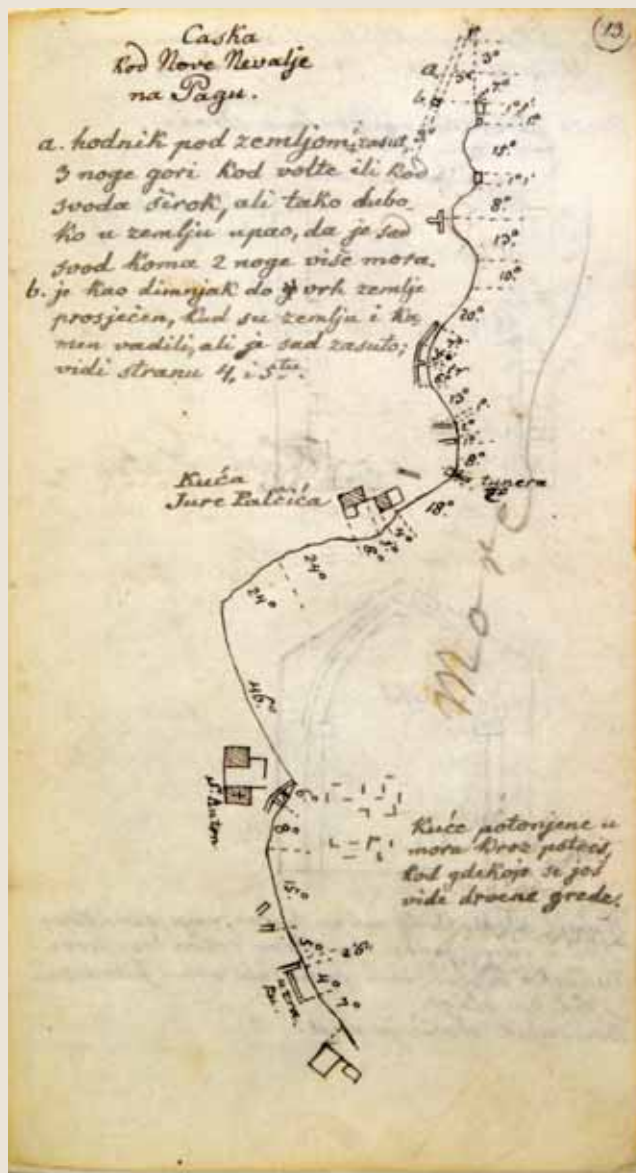 13.
Caska
kod Nove Nevalje
na Pagu.
a. hodnik pod zemljom, zasut,
3 noge gori kod volte ili kod
svoda širok, ali tako dubo-
ko u zemlju upao, da je sad
svod koma 2 noge više mora.
b. je kao dimnjak do vrh zemlje
prosječen, kud su zemlju i ka-
men vadili, ali je sad zasuto;
vidi stranu 4, i 5tu.
a
b.
3°
3°
7°
1°1'
1°
15°
1°1'
8°
13°
10°
20°
13°
2°
1°
8°
tunera
18°
Kuća
Jure Palčića
24°
24°
46°
More
S. Anton
6°
8°
15°
Kuće potonjene u
mora kroz potres,
kod gdekoje se još
vide drvene grede.
5°
2°6'
4°
7°